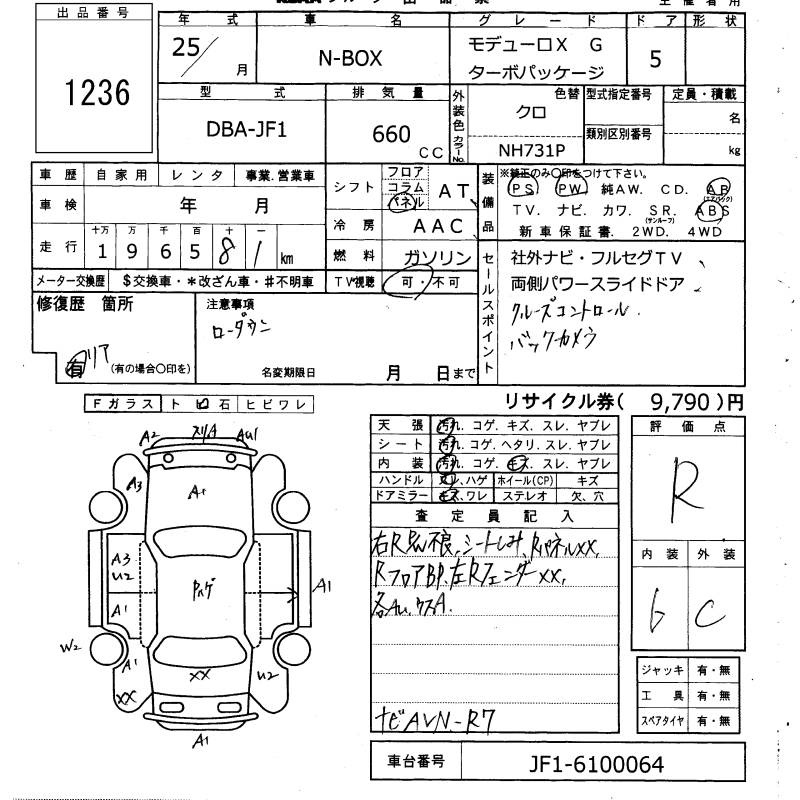 出品番号
1236
年 式 車 名 グレード ドア 形状
25/ 月 N-BOX モデューロX G ターボパッケージ 5
型 式 排気量 外装色 色替 型式指定番号 定員・積載
DBA-JF1 660 CC カラーNo. クロ NH731P 類別区別番号 名 kg
車歴 自家用 レンタ 事業.営業車
車検 年 月
走行 十万 万 千 百 十 一
1 9 6 5 8 1 km
メーター交換歴 $交換車・*改ざん車・#不明車
シフト フロア コラム パネル AT
冷房 AAC
燃料 ガソリン
TV視聴 可・不可
装備品 ※純正のみ〇印をつけて下さい。
PS PW 純AW. CD. AB(エアバック)
TV. ナビ. カワ. SR.(サンルーフ) ABS
新車保証書. 2WD. 4WD
セールスポイント
社外ナビ・フルセグTV
両側パワースライドドア
クルーズコントロール.
バックカメラ
修復歴 箇所
リア
有 (有の場合〇印を)
注意事項
ローダウン
名変期限日 月 日まで
リサイクル券( 9,790 )円
Fガラス ト ビ 石 ヒビワレ
A2 スリA AU1
A3 A1
A3 U2
A1 Pハゲ A1
W2 A1 XX U2
XX
A1
天張 汚れ. コゲ. キズ. スレ. ヤブレ
シート 汚れ. コゲ. ヘタリ. スレ. ヤブレ
内装 汚れ. コゲ. キズ. スレ. ヤブレ
ハンドル スレ、ハゲ ホイール(CP) キズ
ドアミラー キズ、ワレ ステレオ 欠、穴
査定員記入
シートしみ、RパネルXX,
RフロアBP. 左RフェンダーXX,
各AU. ウスA.
ナビAVN-R7
評価点
R
内装 外装
6 C
ジャッキ 有・無
工具 有・無
スペアタイヤ 有・無
車台番号 JF1-6100064